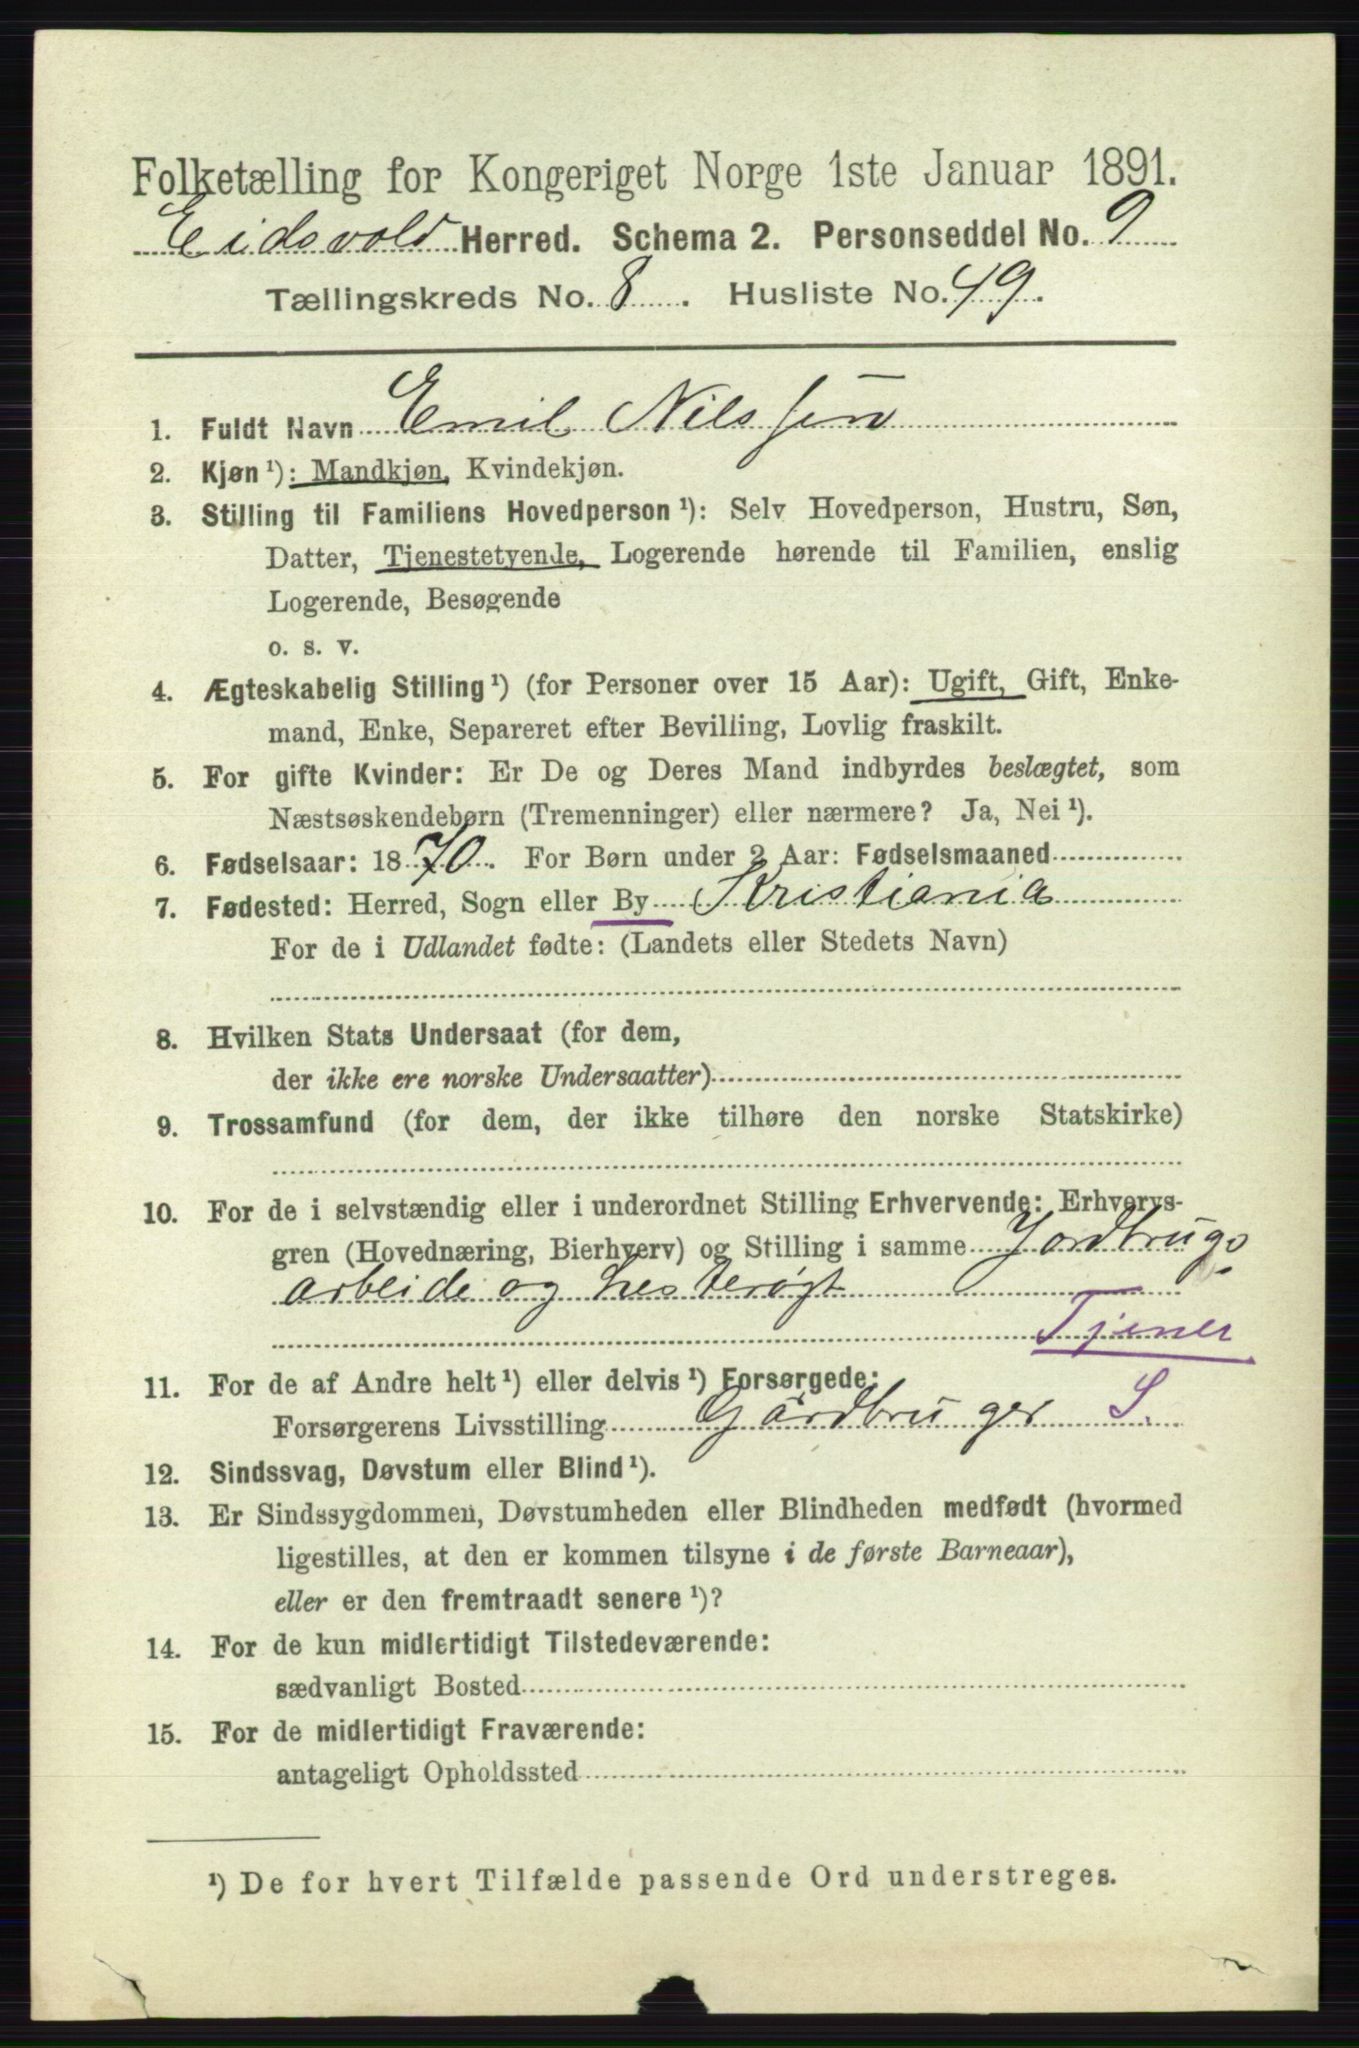 Folketælling for Kongeriget Norge 1ste Januar 1891.
Eidsvold Herred. Schema 2. Personseddel No. 9
Tællingskreds No. 8. Husliste No. 49.
1. Fuldt Navn Emil Nilssen
2. Kjøn ¹): Mandkjøn, Kvindekjøn.
3. Stilling til Familiens Hovedperson ¹): Selv Hovedperson, Hustru, Søn,
Datter, Tjenestetyende, Logerende hørende til Familien, enslig
Logerende, Besøgende
o. s. v.
4. Ægteskabelig Stilling ¹) (for Personer over 15 Aar): Ugift, Gift, Enke-
mand, Enke, Separeret efter Bevilling, Lovlig fraskilt.
5. For gifte Kvinder: Er De og Deres Mand indbyrdes beslægtet, som
Næstsøskendebørn (Tremenninger) eller nærmere? Ja, Nei ¹).
6. Fødselsaar: 1870. For Børn under 2 Aar: Fødselsmaaned
7. Fødested: Herred, Sogn eller By Kristiania
For de i Udlandet fødte: (Landets eller Stedets Navn)
8. Hvilken Stats Undersaat (for dem,
der ikke ere norske Undersaatter)
9. Trossamfund (for dem, der ikke tilhøre den norske Statskirke)
10. For de i selvstændig eller i underordnet Stilling Erhvervende: Erhvervs-
gren (Hovednæring, Bierhverv) og Stilling i samme Jordbrugs
arbeide og hesterøgt
Tjener
11. For de af Andre helt ¹) eller delvis ¹) Forsørgede:
Forsørgerens Livsstilling Gårdbruger S.
12. Sindssvag, Døvstum eller Blind ¹).
13. Er Sindssygdommen, Døvstumheden eller Blindheden medfødt (hvormed
ligestilles, at den er kommen tilsyne i de første Barneaar),
eller er den fremtraadt senere ¹)?
14. For de kun midlertidigt Tilstedeværende:
sædvanligt Bosted
15. For de midlertidigt Fraværende:
antageligt Opholdssted
¹) De for hvert Tilfælde passende Ord understreges.